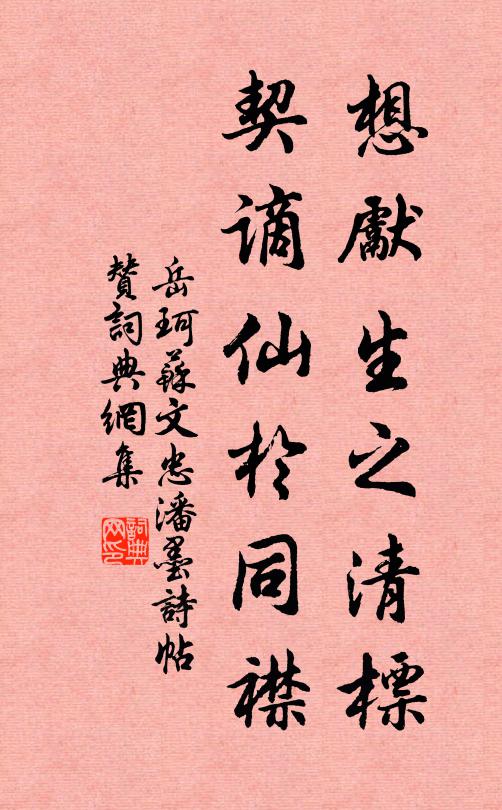 想獻生之清標
契謫仙於同襟
岳珂蘇文忠潘墨詩帖
贊詞典網集
詞典網印